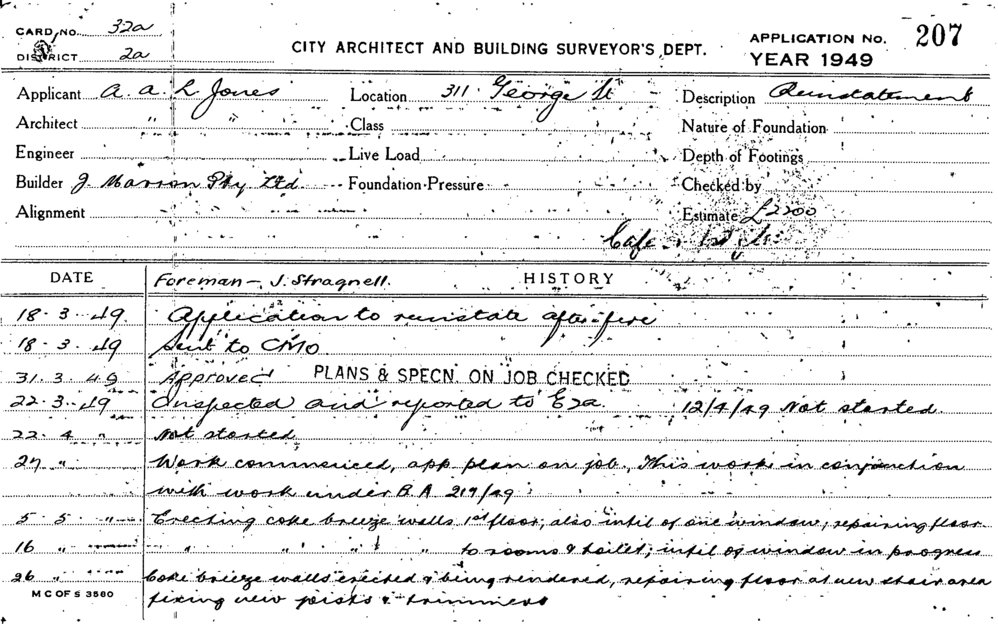 CARD NO. 32a
DISTRICT 2a
CITY ARCHITECT AND BUILDING SURVEYOR'S DEPT.
APPLICATION No. 207
YEAR 1949
Applicant A. A. L Jones Location 311 George St Description Reinstatement
Architect " " Class Nature of Foundation
Engineer Live Load Depth of Footings
Builder J. Marson Pty Ltd Foundation Pressure Checked by
Alignment Estimate £2200
Cafe
DATE Foreman - J. Stragnell. HISTORY
18.3.49 Application to reinstate after fire
18.3.49 Sent to CMO.
31.3.49 Approved PLANS & SPECN. ON JOB CHECKED
22.3.49 Inspected and reported to 12/4/49 Not started.
22.4 " Not started
27 " Work commenced, app plan on job, This work in conjunction
with work under B.A 217/49
5.5 " Erecting coke breeze walls 1st floor; also infil of one window; repairing floor
16 " " " " " to rooms & toilet; infil of window in progress
26 " Coke breeze walls erected & being rendered, repairing floor at new stair area
M C OF S 3560
fixing new joists & trimmers